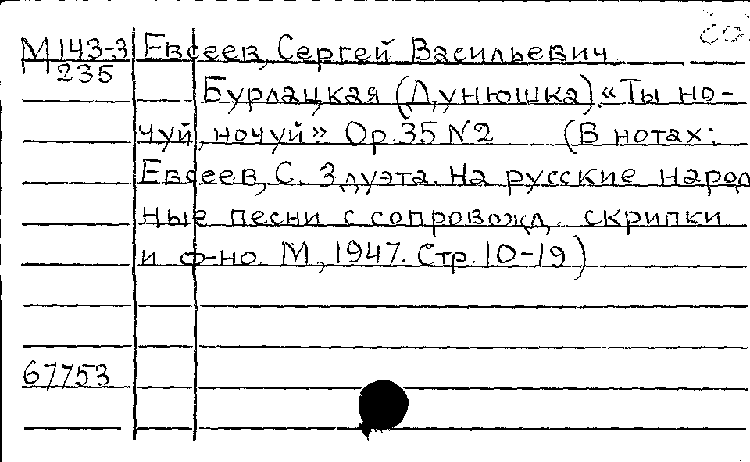 М 143-3 Евсеев, Сергей Васильевич
235
Бурлацкая (Дунюшка). «Ты но-
чуй, ночуй» Ор. 35 N2 (В нотах:
Евсеев, С. 3 дуэта. На русские народ
ные песни с сопровожд. скрипки
и ф-но. М., 1947. Стр. 10-19)
67753